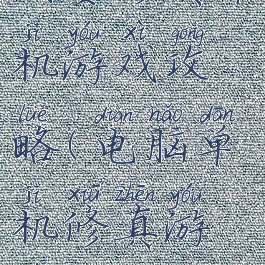 jī yóu xì gōng
机游戏攻
lüè diàn nǎo dān
略(电脑单
jī xiū zhēn yóu
机修真游